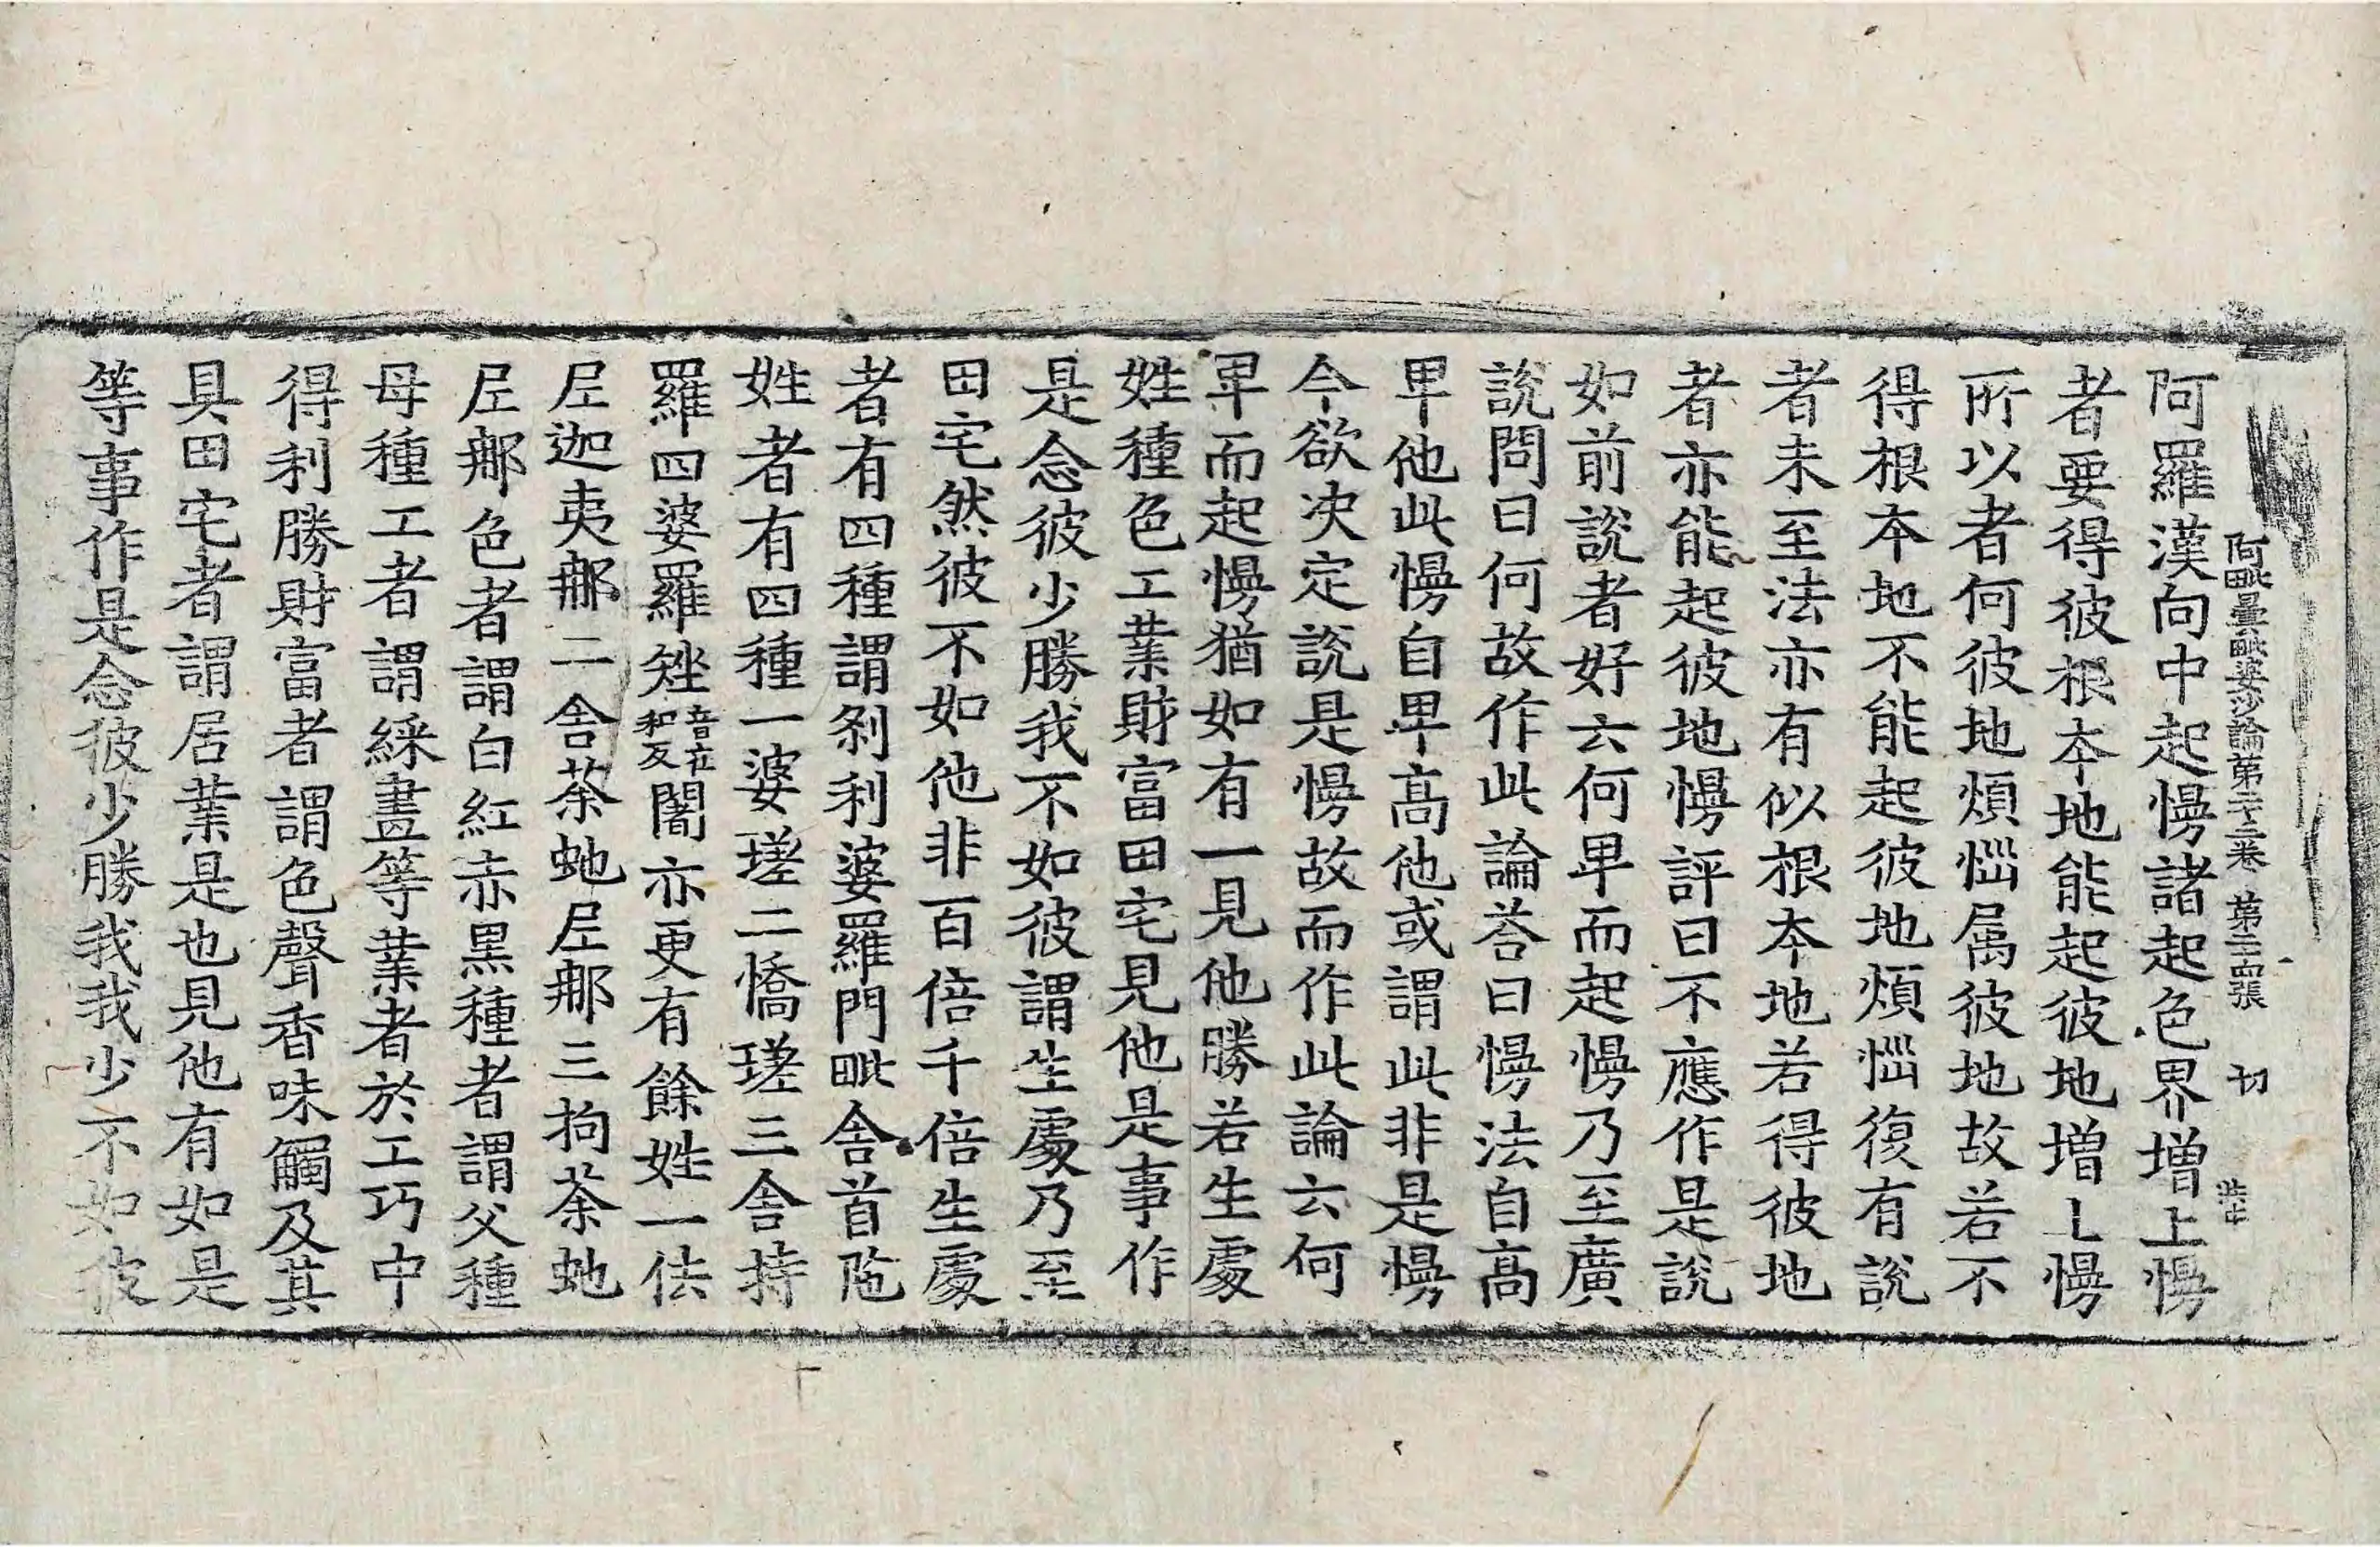 阿毗曇毗婆沙論第二十三卷 第二十四張 切
阿羅漢向中起慢諸起色界增上慢
者要得彼根本地能起彼地增上慢
所以者何彼地煩惱属彼地故若不
得根本地不能起彼地煩惱復有說
者未至法亦有似根本地若得彼地
者亦能起彼地慢評曰不應作是說
如前說者好云何卑而起慢乃至廣
說問曰何故作此論荅曰慢法自高
卑他此慢自卑高他或謂此非是慢
今欲決定說是慢故而作此論云何
卑而起慢猶如有一見他勝若生處
姓種色工業財富田宅見他是事作
是念彼少勝我不如彼謂生處乃至
田宅然彼不如他非百倍千倍生處
者有四種謂刹利婆羅門毗舍首陁
姓者有四種一婆蹉二憍蹉三舍持
羅四婆羅矬音在和反闍亦更有餘姓一佉
𡰱迦夷那二舍荼虵𡰱那三拘荼虵
𡰱那色者謂白紅赤黑種者謂父種
母種工者謂綵畫等業者於工巧中
得利勝財富者謂色聲香味觸及其
具田宅者謂居業是也見他有如是
等事作是念彼少勝我我少不如彼